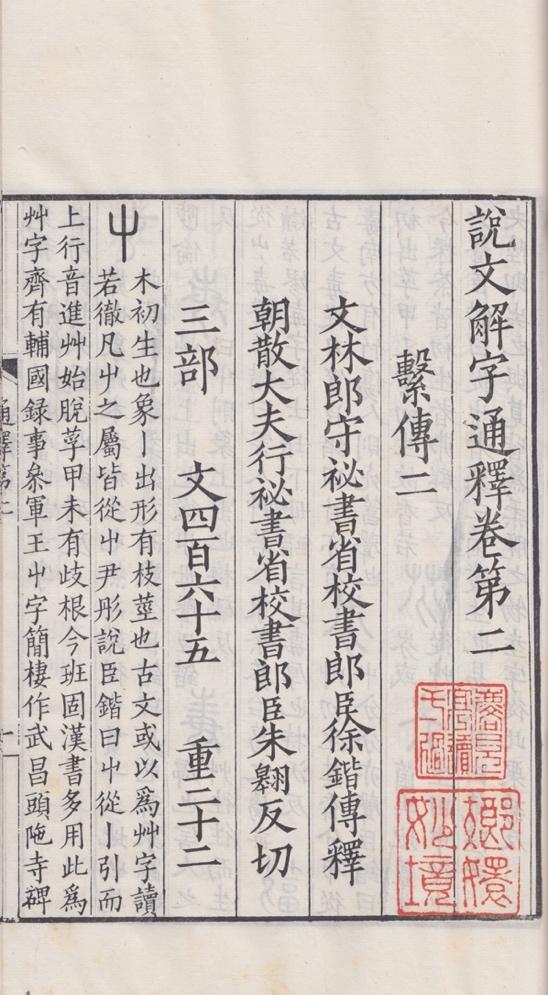 說文解字通釋卷第二
繫傳二
文林郎守祕書省校書郎臣徐鍇傳釋
朝散大夫行祕書省校書郎臣朱翱反切
三部 文四百六十五 重三十二
屮
木初生也象丨出形有枝莖也古文或以爲艸字讀
若徹凡屮之屬皆從屮尹彤說臣鍇曰屮從丨引而
上行音進艸始脫莩甲未有歧根今班固漢書多用此爲
艸字齊有輔國録事叅軍王屮字簡棲作武昌頭陁寺碑
嫏嬛妙境